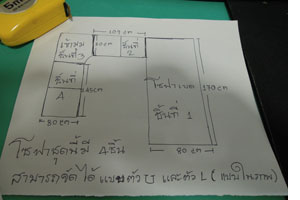 109 cm
เข้ามุม
ชิ้นที่ 3
60 cm
ชิ้นที่
2
ชิ้นที่
4
145 cm
80 cm
โซฟาเบด
ชิ้นที่ 1
170 cm
90 cm
โซฟาชุดนี้มี 4ชิ้น
สามารถจัดได้ แบบตัว U และตัว L (แบบในภาพ)